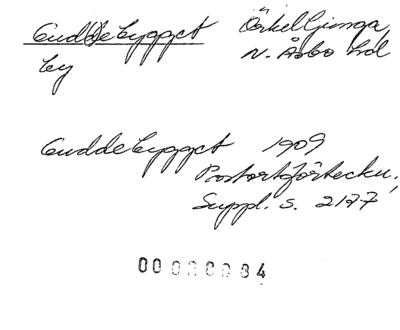 Gud(d)ebygget Örkelljunga,
by N. Åsbo hd
Guddebygget 1909
Postortsförteckn.,
Suppl. s. 2177